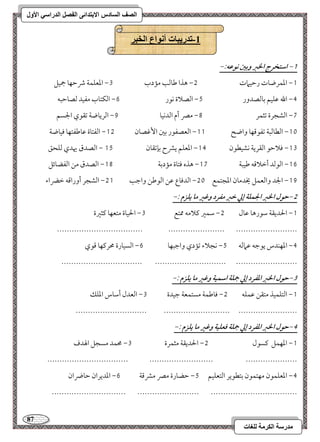 الصف السادس الابتدائى الفصل الدراسي الأول
1-تدريبات أنواع الخبر
1- استخرج الخبر وبين نوعه:-
1- الممرضات رحيمات 2- هذا طالب مؤدب 3- المعلمة شرحها جميل
4- الله عليم بالصدور 5- الصلاة نور 6- الكتاب مفيد لصاحبه
7- الشجرة تثمر 8- مصر أم الدنيا 9- الرياضة تقوي الجسم
10- الطالبة تفوقها واضح 11- العصفور بين الأغصان 12- الفتاة عاطفتها فياضة
13- فلاحو القرية نشيطون 14- المعلم يشرح بإتقان 15- الصدق يهدي للحق
16- الولد أخلاقه طيبة 17- هذه فتاة مؤدبة 18- الصدق من الفضائل
19- الجد والعمل يخدمان المجتمع 20- الدفاع عن الوطن واجب 21- الشجر أوراقه خضراء
2- حول الخبر الجملة إلي خبر مفرد وغير ما يلزم:-
1- الحديقة سورها عال 2- سمير كلامه ممتع 3- الحياة متعها كثيرة
4- المهندس يوجه عماله 5- نجلاء تؤدي واجبها 6- السيارة محركها قوي
3- حول الخبر المفرد إلي جملة اسمية وغير ما يلزم:-
1- التلميذ متقن عمله 2- فاطمة مستمعة جيدة 3- العدل أساس الملك
4- حول الخبر المفرد إلي جملة فعلية وغير ما يلزم:-
1- المهمل كسول 2- الحديقة مثمرة 3- محمد مسجل الهدف
4- المعلمون مهتمون بتطوير التعليم 5- حضارة مصر مشرقة 6- المديران حاضران
87
مدرسة الكرمة للغات